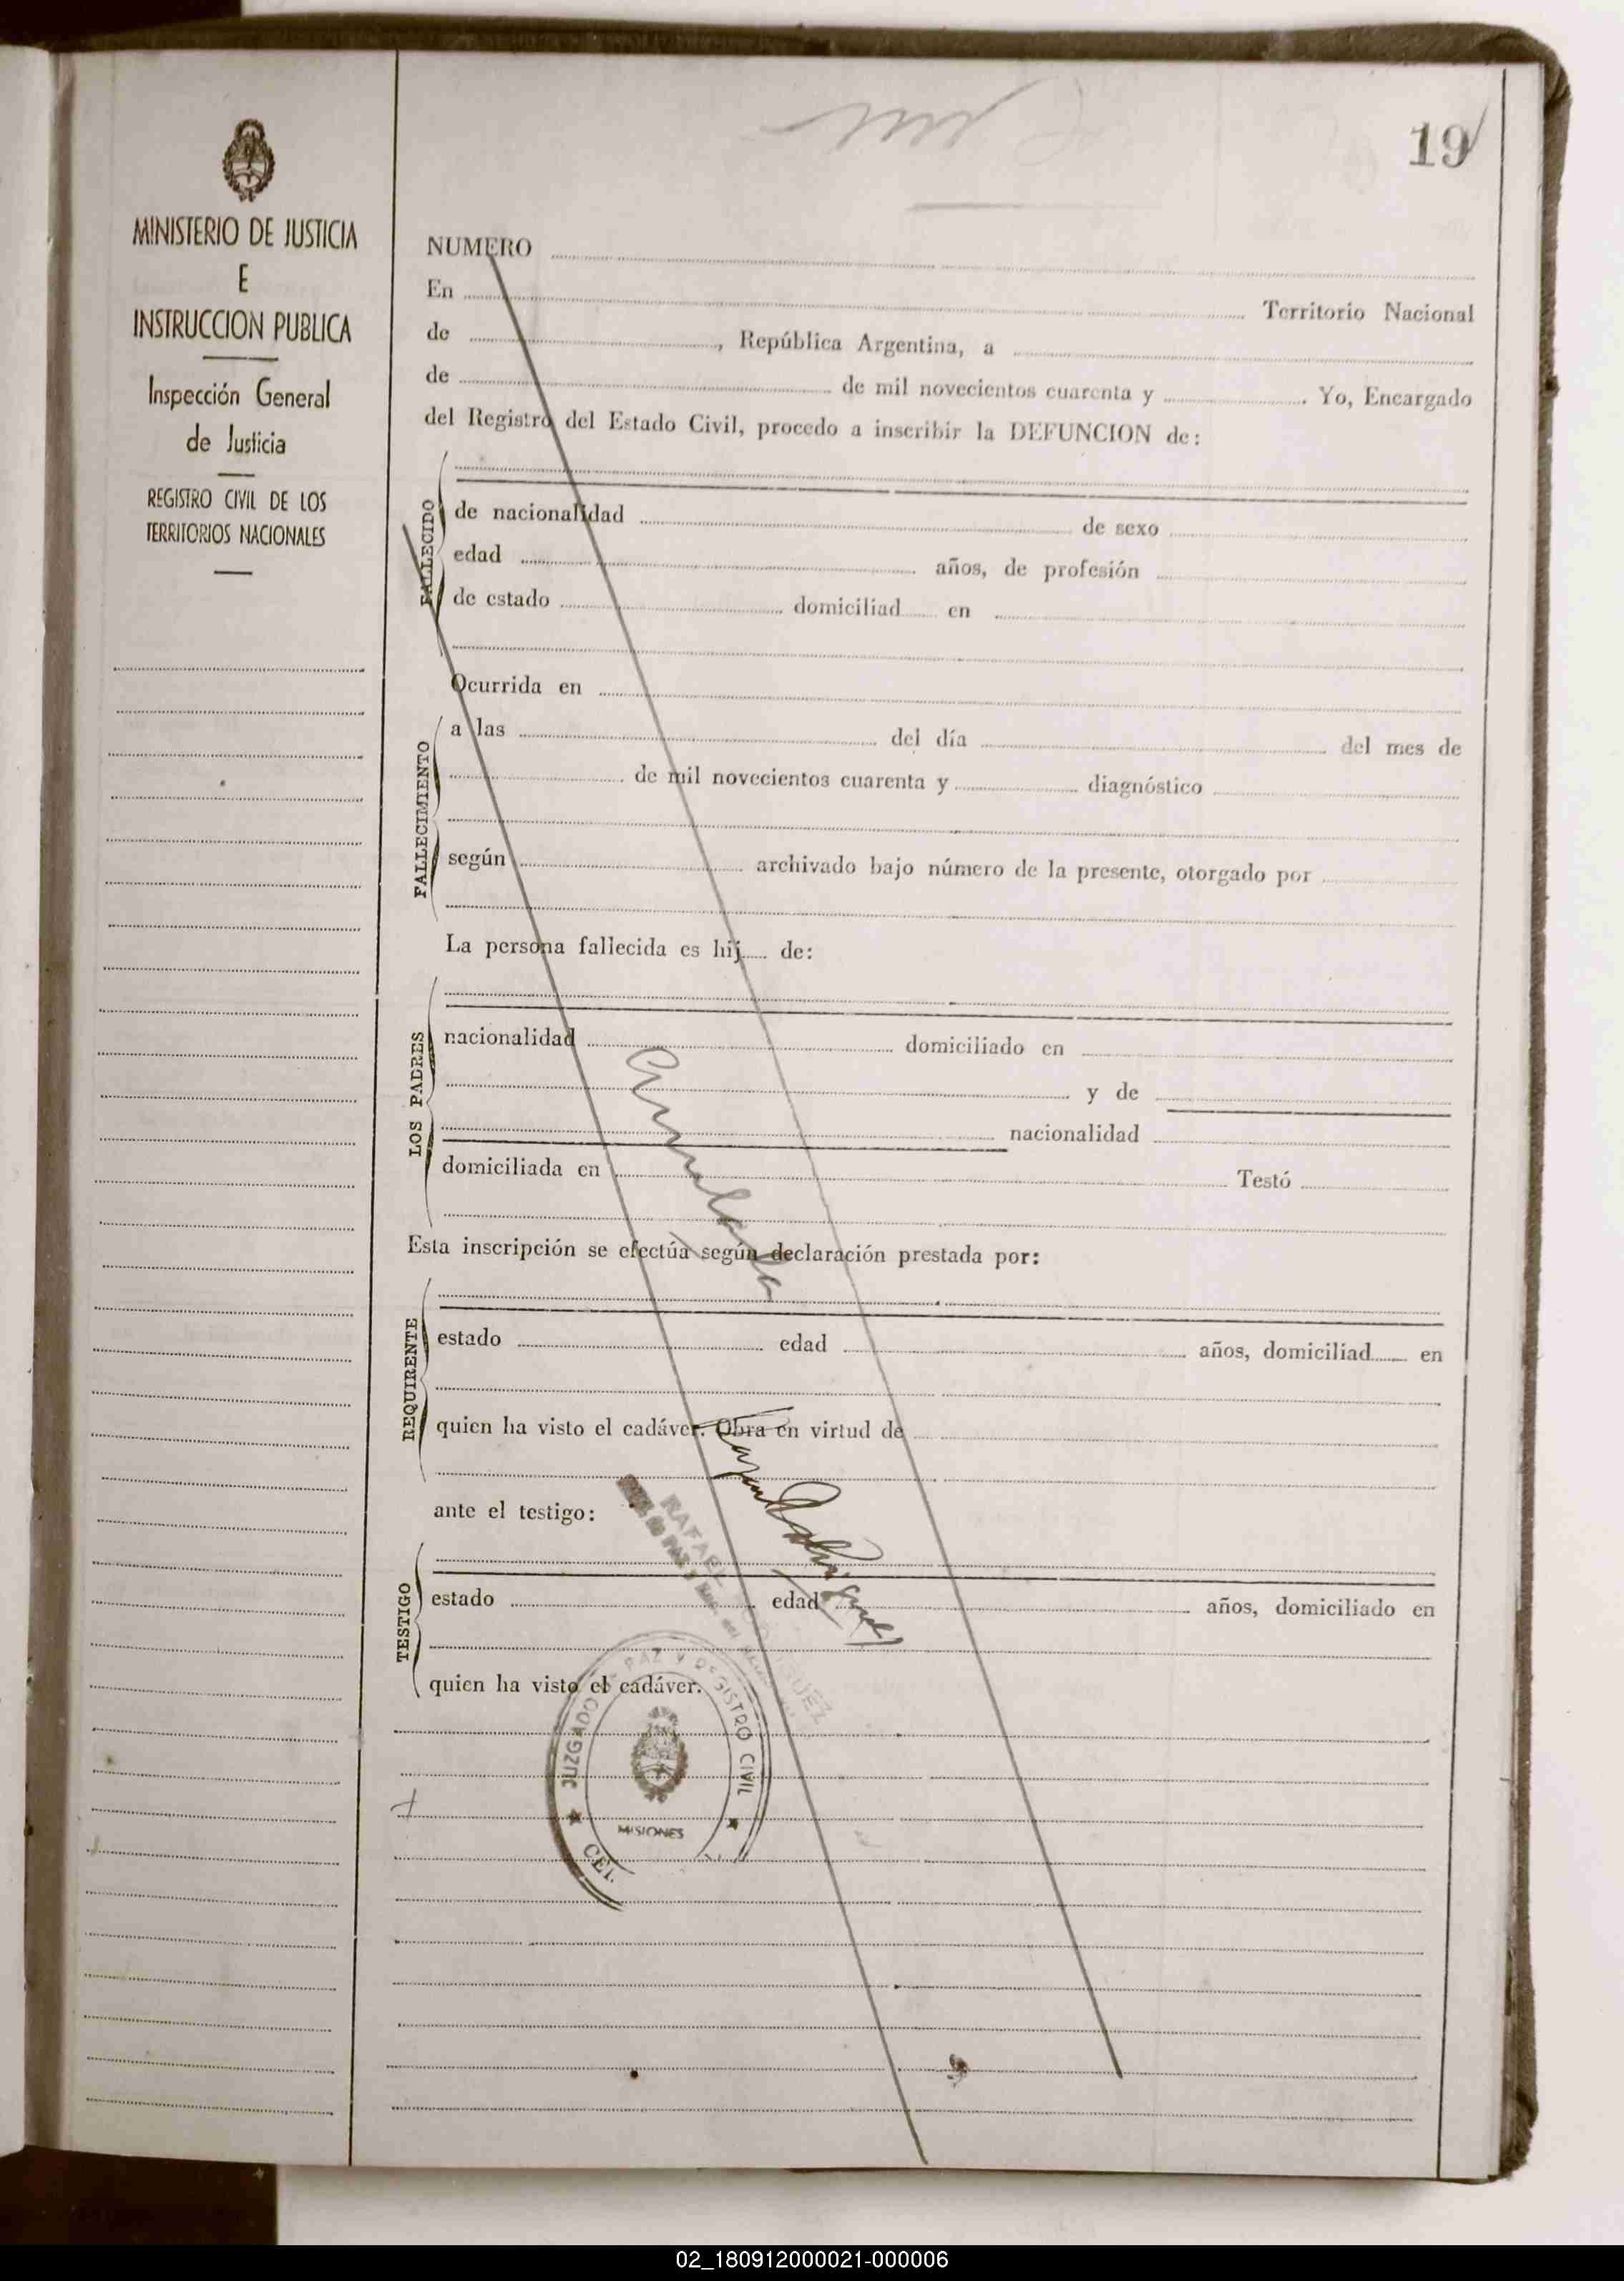 19
MINISTERIO DE JUSTICIA
E
INSTRUCCION PUBLICA
Inspección General
de Justicia
REGISTRO CIVIL DE LOS
TERRITORIOS NACIONALES
NUMERO
En Territorio Nacional
de , República Argentina, a
de de mil novecientos cuarenta y . Yo, Encargado
del Registro del Estado Civil, procedo a inscribir la DEFUNCION de:
FALLECIDO
de nacionalidad de sexo
edad años, de profesión
de estado domiciliad en
Ocurrida en
FALLECIMIENTO
a las del día del mes de
de mil novecientos cuarenta y diagnóstico
según archivado bajo número de la presente, otorgado por
La persona fallecida es hij de:
LOS PADRES
nacionalidad domiciliado en
y de
nacionalidad
domiciliada en Testó
Anulado
Esta inscripción se efectúa según declaración prestada por:
REQUIRENTE
estado edad años, domiciliad en
quien ha visto el cadáver. Obra en virtud de
ante el testigo:
RAFAEL
TESTIGO
estado edad años, domiciliado en
quien ha visto el cadáver.
JUZGADO DE PAZ Y REGISTRO CIVIL
MISIONES
02_180912000021-000006